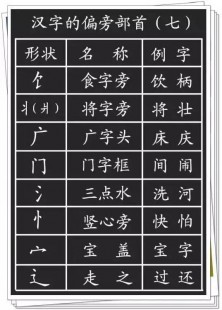 汉字的偏旁部首（七）
形状 名称 例字
饣 食字旁 饮 柄
丬（爿） 将字旁 将 壮
广 广字头 床 庆
门 门字框 间 闹
氵 三点水 洗 河
忄 竖心旁 快 怕
宀 宝盖 宝 字
辶 走之 过 还